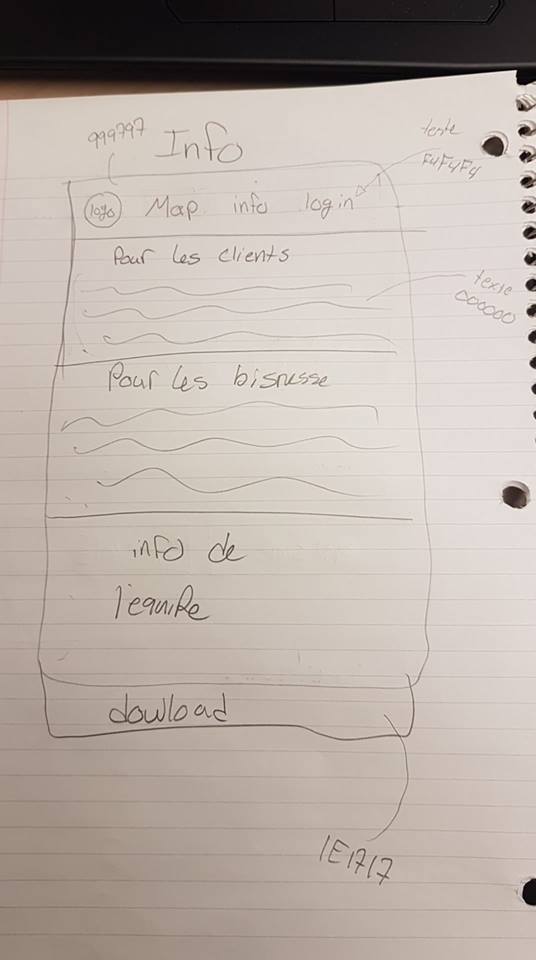 999797 Info
texte
F4F4F4
logo Map info login
Pour les clients
texte
000000
Pour les bisnusse
info de
l'equipe
dowload
1E1717